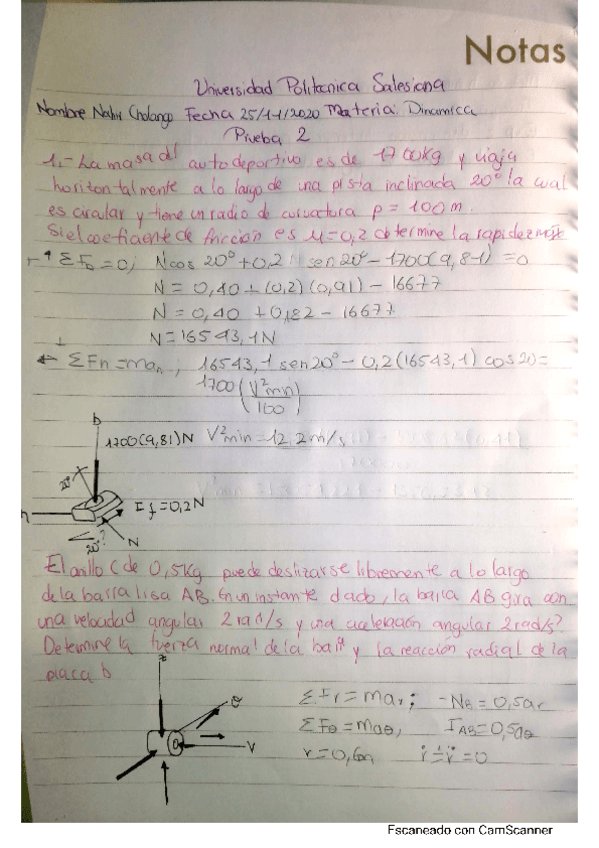 Notas
Universidad Politecnica Salesiana
Nombre Nahu Cholango Fecha 25/11/2020 Materia: Dinamica
Prueba 2
1.- La masa del auto deportivo es de 1700kg y viaja
horizontalmente a lo largo de una pista inclinada 20° la cual
es circular y tiene un radio de curvatura ρ = 100 m.
Si el coeficiente de friccion es μ=0,2 determine la rapidez
ΣFb =0; Ncos 20° +0,2 N sen20° - 1700(9,81) =0
N = 0,40 + (0,2) (0,91) - 16677
N = 0,40 +0,182 - 16677
N = 16543,1N
ΣFn = man ; 16543,1 sen20° - 0,2(16543,1) cos20 =
1700 (V²min / 100)
b
1700(9,81)N V²min = 12,2m/s
20°
n
Ff=0,2N
20°
N
El anillo C de 0,5kg puede deslizarse libremente a lo largo
de la barra lisa AB. En un instante dado, la barra AB gira con
una velocidad angular 2 rad/s y una aceleración angular 2rad/s²
Determine la fuerza normal de la barra y la reacción radial de la
placa b
z
ΣFr = mar; -NB = 0,5ar
ΣFθ = maθ, FAB = 0,5aθ
r = 0,6m
θ